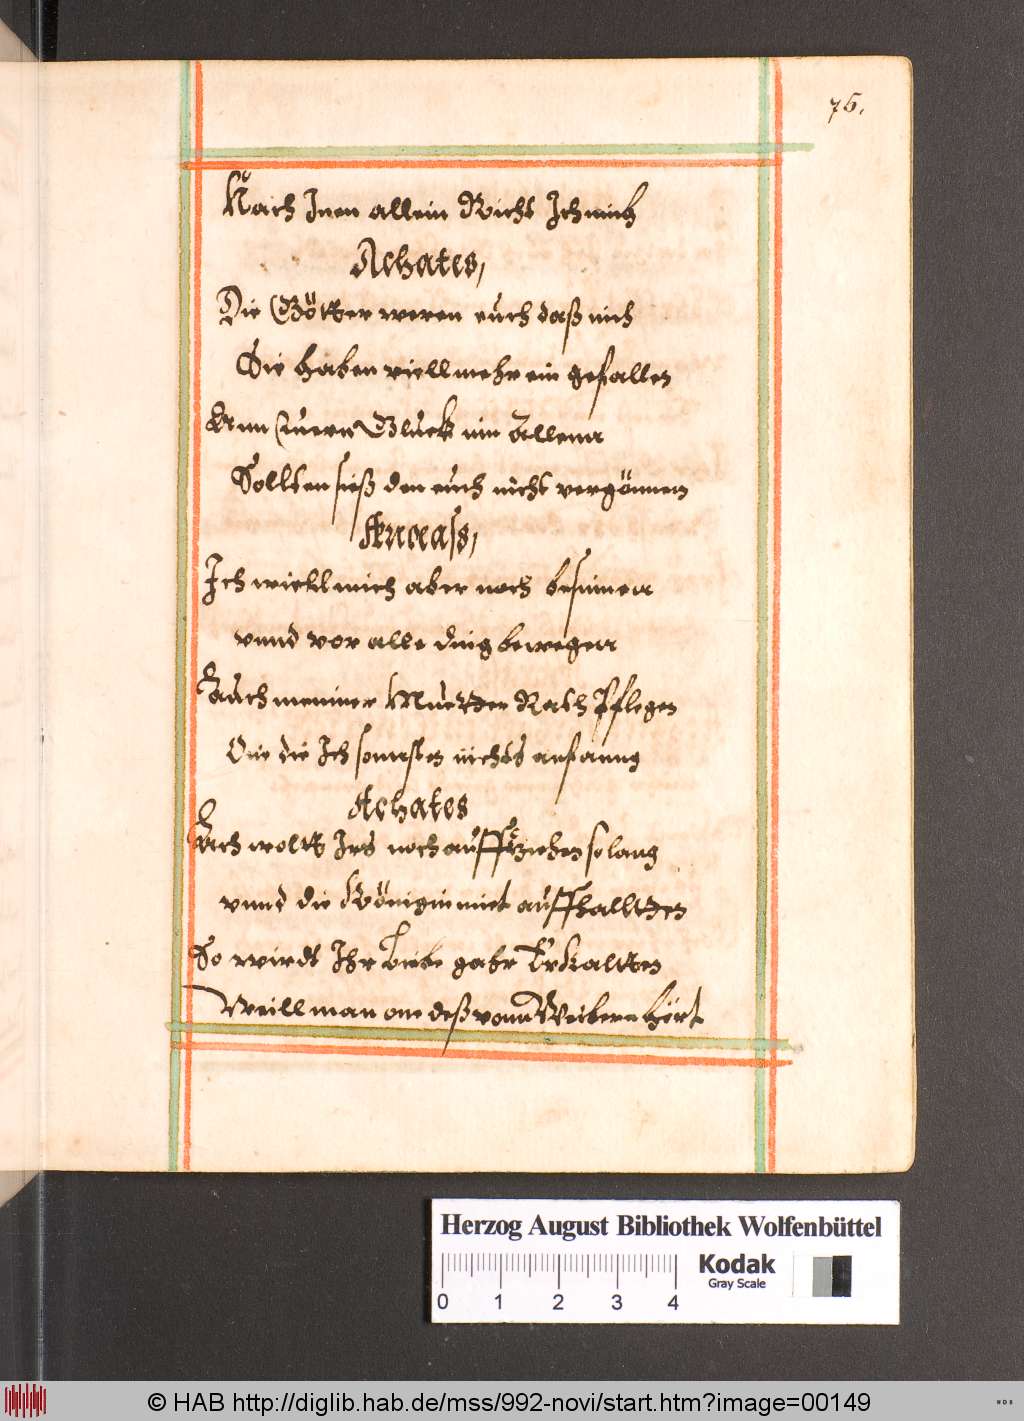 75.
Nach Inen allein Richt Ich mich
Achates,
Die Götter weren euch daß nich
Sie haben viell mehr ein gefallen
Ann Euern Gluck inn Allenn
Sollten sieß den euch nicht vergönnen
Aeneass,
Ich wiell mich aber noch besinnen
vnnd vor alle ding bewegen
Auch meiner Muetter Rath Pflegen
One die Ich sonnsten nichts anfanng
Achates
Ach wollt Irs noch auffziehen so lang
vnnd die Königin mit auffhallten
So wirdt Ihr Liebe gahr Erkaltten
Weill man one deß vonn Weibern hört
Herzog August Bibliothek Wolfenbüttel
Kodak
Gray Scale
0 1 2 3 4
© HAB http://diglib.hab.de/mss/992-novi/start.htm?image=00149